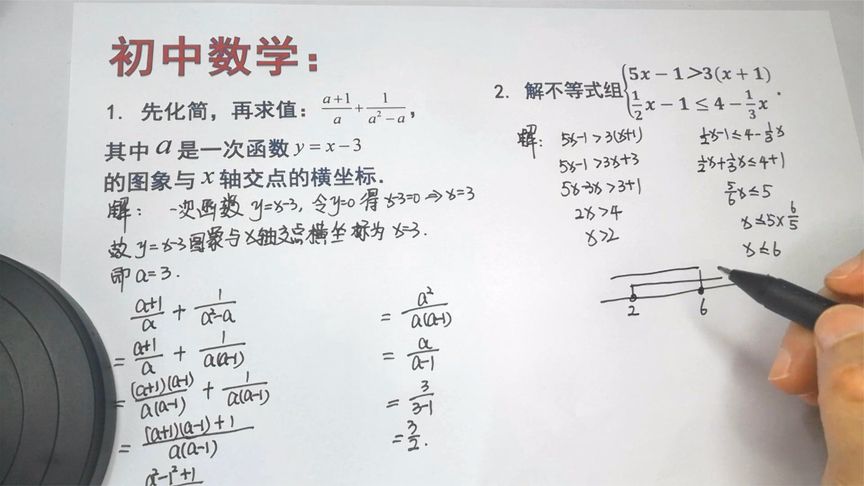 初中数学：
1. 先化简，再求值： (a+1)/a + 1/(a²-a) ，
其中 a 是一次函数 y = x - 3
的图象与 x 轴交点的横坐标．
解： 一次函数 y=x-3, 令y=0 得 x-3=0 ⇒ x=3
故 y=x-3图象与x轴交点横坐标为 x=3.
即 a=3.
(a+1)/a + 1/(a²-a)
= (a+1)/a + 1/(a(a-1))
= ((a+1)(a-1))/(a(a-1)) + 1/(a(a-1))
= ((a+1)(a-1)+1)/(a(a-1))
a²-1²+1
= a²/(a(a-1))
= a/(a-1)
= 3/(3-1)
= 3/2.
2. 解不等式组 { 5x − 1 > 3(x + 1)
1/2 x − 1 ≤ 4 − 1/3 x .
解: 5x-1 > 3(x+1)
5x-1 > 3x+3
5x-3x > 3+1
2x > 4
x > 2
1/2 x-1 ≤ 4-1/3 x
1/2 x+1/3 x ≤ 4+1
5/6 x ≤ 5
x ≤ 5×6/5
x ≤ 6
2 6